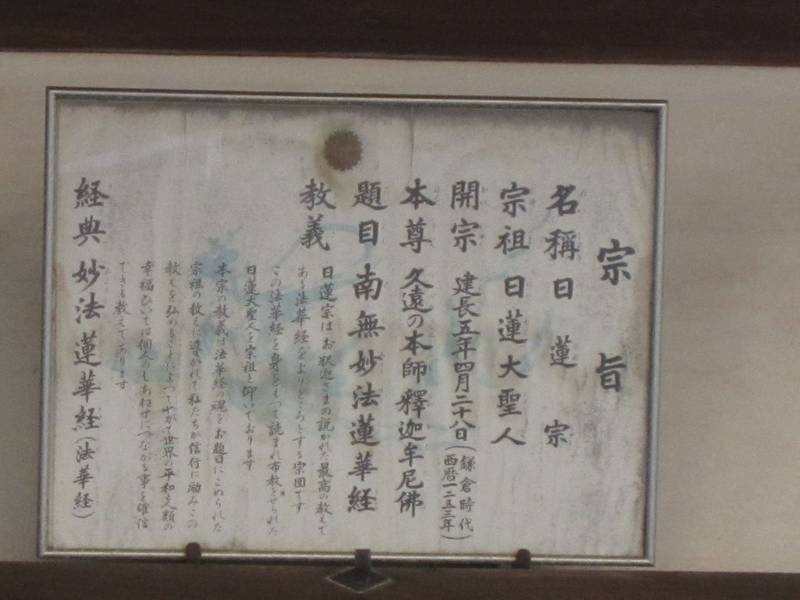 宗旨
名稱 日蓮宗
宗祖 日蓮大聖人
開宗 建長五年四月二十八日(鎌倉時代 西暦一二五三年)
本尊 久遠の本師釋迦牟尼佛
題目 南無妙法蓮華経
教義
日蓮宗はお釈迦さまの説かれた最高の教えで
ある法華経をよりどころとする宗団です
この法華経を身をもって読まれ布教をせられた
日蓮大聖人を宗祖と仰いでおります
本宗の教義は法華経の魂をお題目にこめられた
宗祖の教えに導かれて私たちが信行に励みこの
教えを弘めることによってやがて世界の平和を人類の
幸福ひいては個人のしあわせにつながる事を確信
できると教えております
経典 妙法蓮華経(法華経)